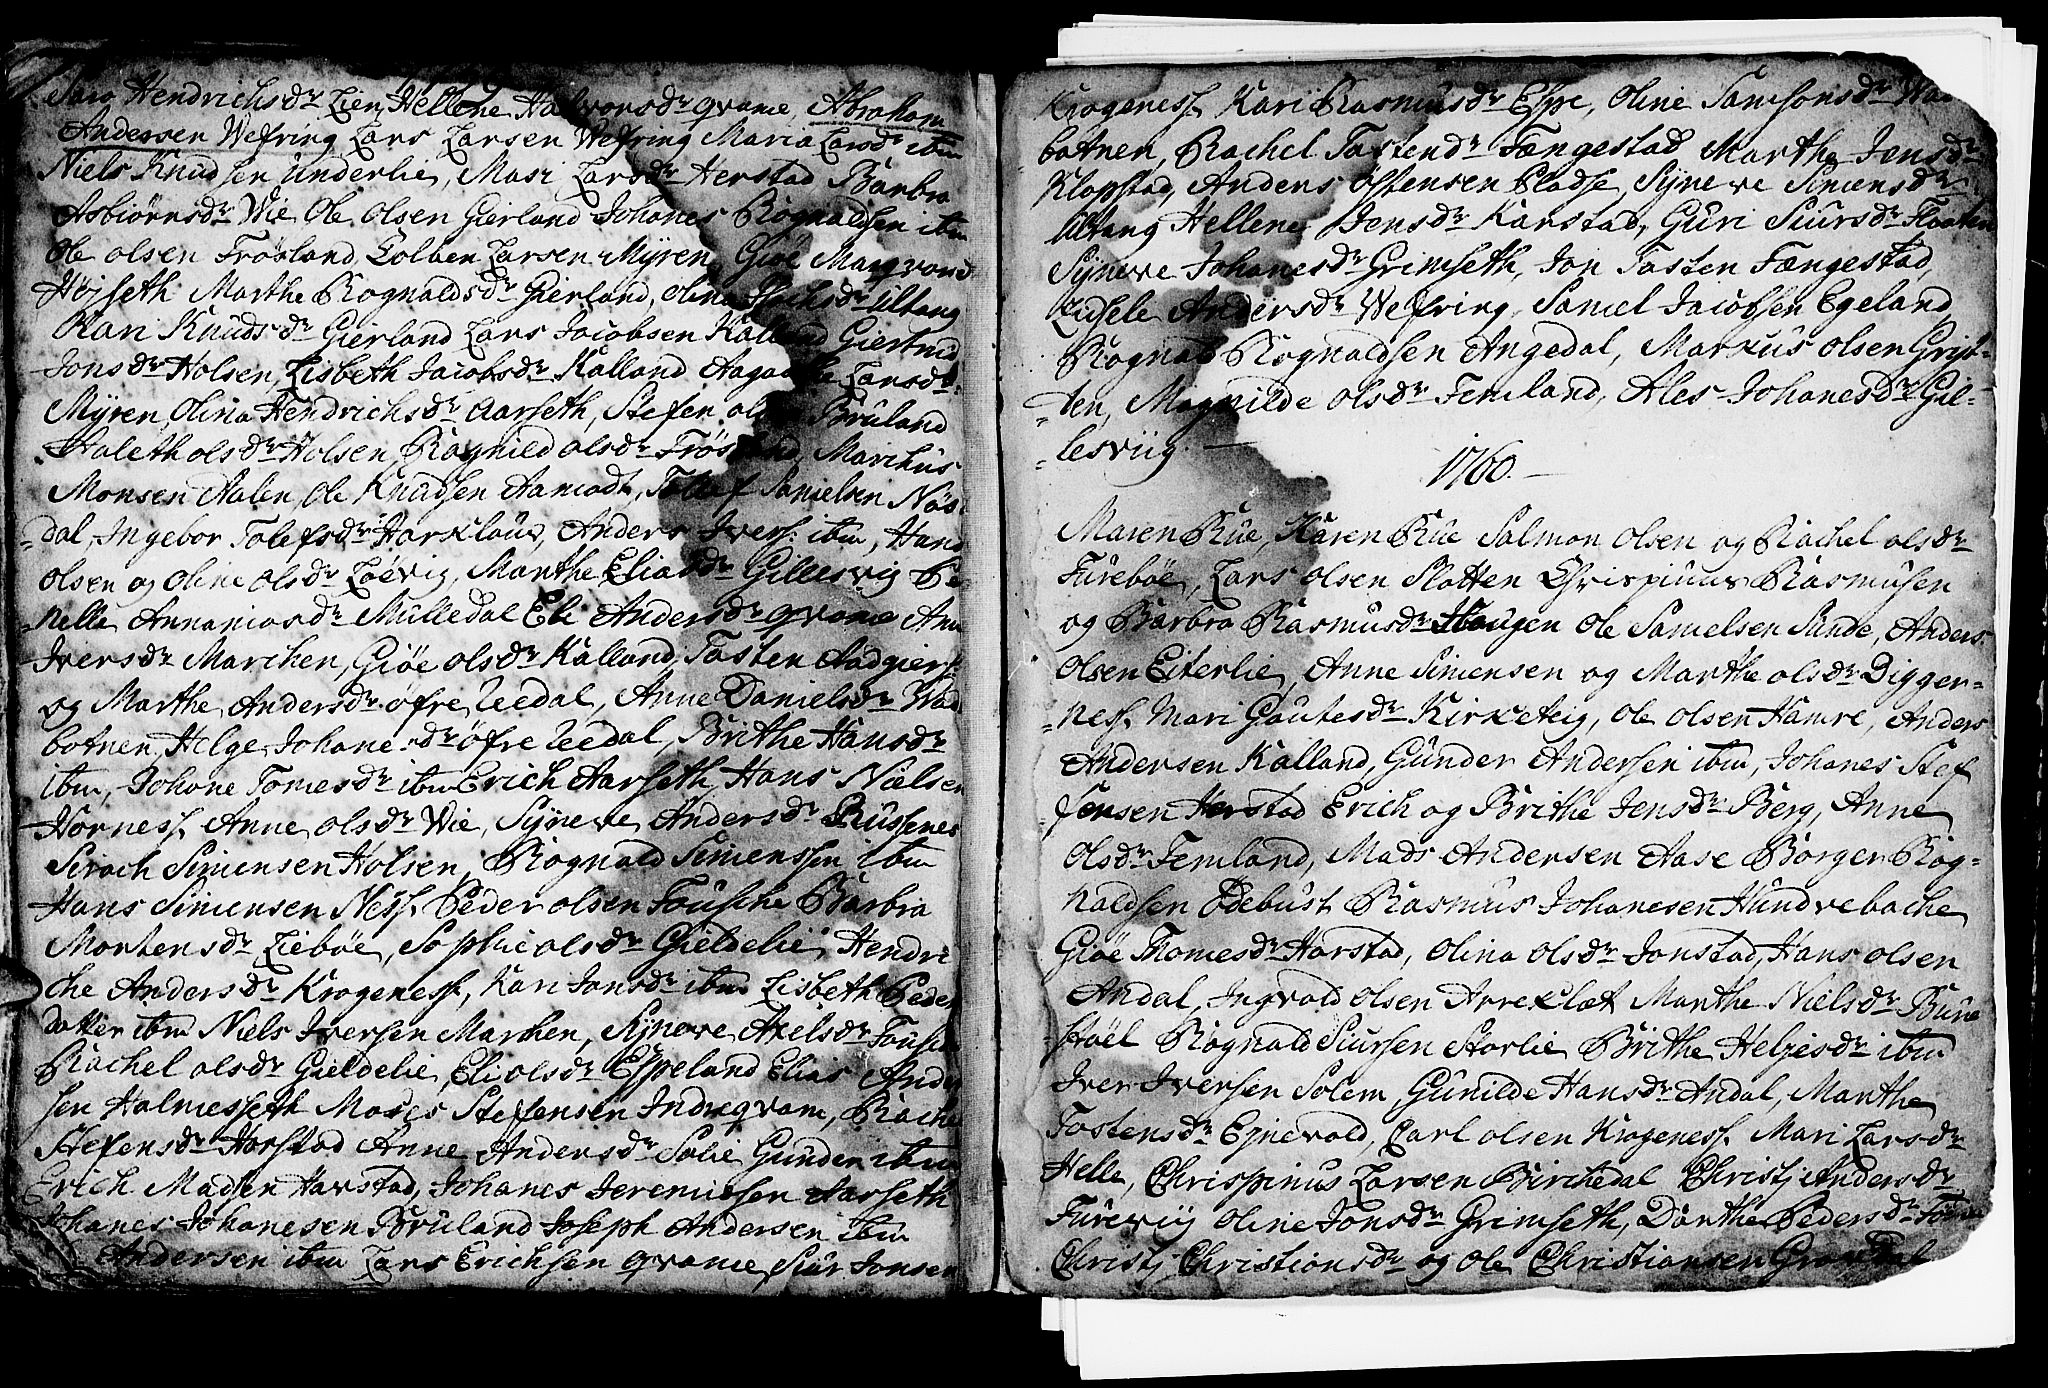 Hendrichsdr Lien, Hellene Halvorsdr qvame, Abraham
Andersen Wefring Lars Larsen Wefring Maria Larsdr ibm
Niels Knudsen Underlie, Mari Larsdr Herstad Barbra
Asbiørnsdr Wie Ole Olsen Gierland Johanes Rognaldsen ibm
Ole olsen Frøsland Colben Larsen Myren, Giøe
Højseth Marthe Rognaldsdr Gierland, Olina Ullang
Kari Knudsdr Gierland Lars Jacobsen Kalland Giertrud
Jonsdr Holsen, Lisbeth Jacobsdr Kalland Larsdr
Myren, Olina Hendrichsdr Aarseth, Stefen olsen Bruland
olsdr Holsen Ragnild olsdr Frøsland, Marchus
Monsen Aalen, Ole Knudsen Aamodt, Tollef Samelsen Nøs-
=dal, Ingebor Tolefsdr Harklaus, Anders Ivers: ibm, Hans
Olsen og Oline olsdr Løevig, Marthe Eliasdr Gillesvig Pe
=nelle Annaniasdr Mulledal Eli Andersdr qvame Anne
Iversdr Marchen, Giøe olsdr Kalland, Tosten Aadgiers:
og Marthe Andersdr øfre Leedal, Anne Danielsdr Wad
botnen, Helge Johanesdr øfre Leedal, Brithe Hansdr
ibm, Johane Tomesdr ibm Erich Aarseth, Hans Nielsen
Horness. Anne olsdr Wie, Syneve Andersdr Russenes
Sirach Simensen Holsen, Rognald Simenssen ibm
Hans Simensen Ness. Peder olsen Fousche Barbra
Mortensdr Liebøe, Sophie olsdr Gieldelie, Hendri
che Andersdr Krogeness, Kari Jonsdr ibm Lisbeth Peder
datter ibm Niels Iversen Marchen, Syneve Axelsdr
Rachel olsdr Gieldelie, Eli olsdr Espeland Elias Ander
sen Halmesseth Moses Steffensen Indreqvam, Rachel
Stefensdr Horstad Anne Andersdr Solie Gunder ibm
Erich Madsen Harstad, Johanes Jeremiessen Aarseth
Johanes Johanesen Bruland Joseph Andersen ibm
Andersen ibm Lars Erichsen qvame Siur Jonsen
Krogeness. Kari Rasmusdr Espe, Oline Samsonsdr Wad
botnen, Rachel Tostendr Fængestad Marthe Jensdr
Klopstad, Anders Østensen Pladse, Syneve Simensdr
Ultang Hellene Jensdr Karstad, Guri Siursdr Floten
Syneve Johanesdr Grimseth, Jon Tosten Fængestad
Andersdr Wefring, Samel Jacobsen Egeland,
Rognald Rognaldsen Angedal, Markus Olsen
=ten, Magnilde olsdr Femland, Ales Johanesdr Gil=
=lesviig. —
1760. —
Maren Rue, Karen Rue Salmon Olsen og Rachel olsdr
Furebøe, Lars olsen Slotten Chrispinus Rasmusen
og Barbra Rasmusdr Hougen Ole Samelsen Sunde, Anders
Olsen Eiterlie, Anne Simensen og Marthe olsdr Digger=
=ness. Mari Gautesdr Kirketeig, Ole Olsen Hamre, Anders
Andersen Kalland, Gunder Andersen ibm, Johanes Stef
fensen Herstad Erich og Brithe Jensdr Berg, Anne
Olsdr Femland, Mads Andersen Aase Børger Rog=
naldsen Ødebust Rasmus Johanesen Hundvebache
Giøe Thomesdr Horstad, Olina Olsdr Jonstad, Hans olsen
Andal, Ingvald Olsen Arreklæt Marthe Nielsdr Bune
støel Rognald Siursen Storlie Brithe Helgesdr ibm
Iver Iversen Solem, Gunilde Hansdr Andal, Marthe
Tostensdr Eynevold, Carl olsen Krogeness. Mari Larsdr
Helle, Chrispinus Larsen Birchedal Christj Andersdr
Fureviij Oline Jonsdr Grimseth, Dorthe Pedersdr
Christj Christiansdr og Ole Christiansen